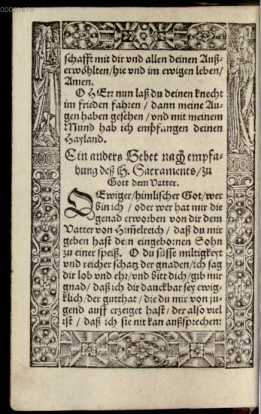 schafft mit dir vnd allen deinen Auß-
erwöhlten/hie vnd im ewigen leben/
Amen.
O HErr nun laß du deinen knecht
im frieden fahren / dann meine Au-
gen haben gesehen / vnd mit meinem
Mund hab ich empfangen deinen
Hayland.
Ein anders Gebet nach empfa-
hung deß H. Sacraments/zu
Gott dem Vatter.
O Ewiger/himlischer Got/wer
bin ich / oder wer hat mir die
genad erworben von dir dem
Vatter von Him̃elreich / daß du mir
geben hast dein eingebornen Sohn
zu einer speiß. O du süsse miltigkeyt
vnd reicher schatz der gnaden/ich sag
dir lob vnd ehr/vnd bitt dich/gib mir
gnad/daß ich dir danckbar sey ewig-
klich/der gutthat / die du mir von ju-
gend auff erzeiget hast/der also viel
ist / daß ich sie nit kan außsprechen: